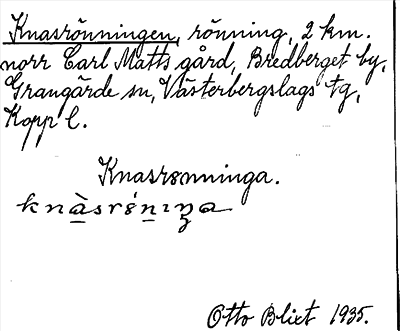 Knasrönningen, rönning, 2 km.
norr Carl Matts gård, Bredberget by,
Grangärde sn, Västerbergslags tg,
Kopp l.
Knasrønninga.
Otto Blixt 1935.